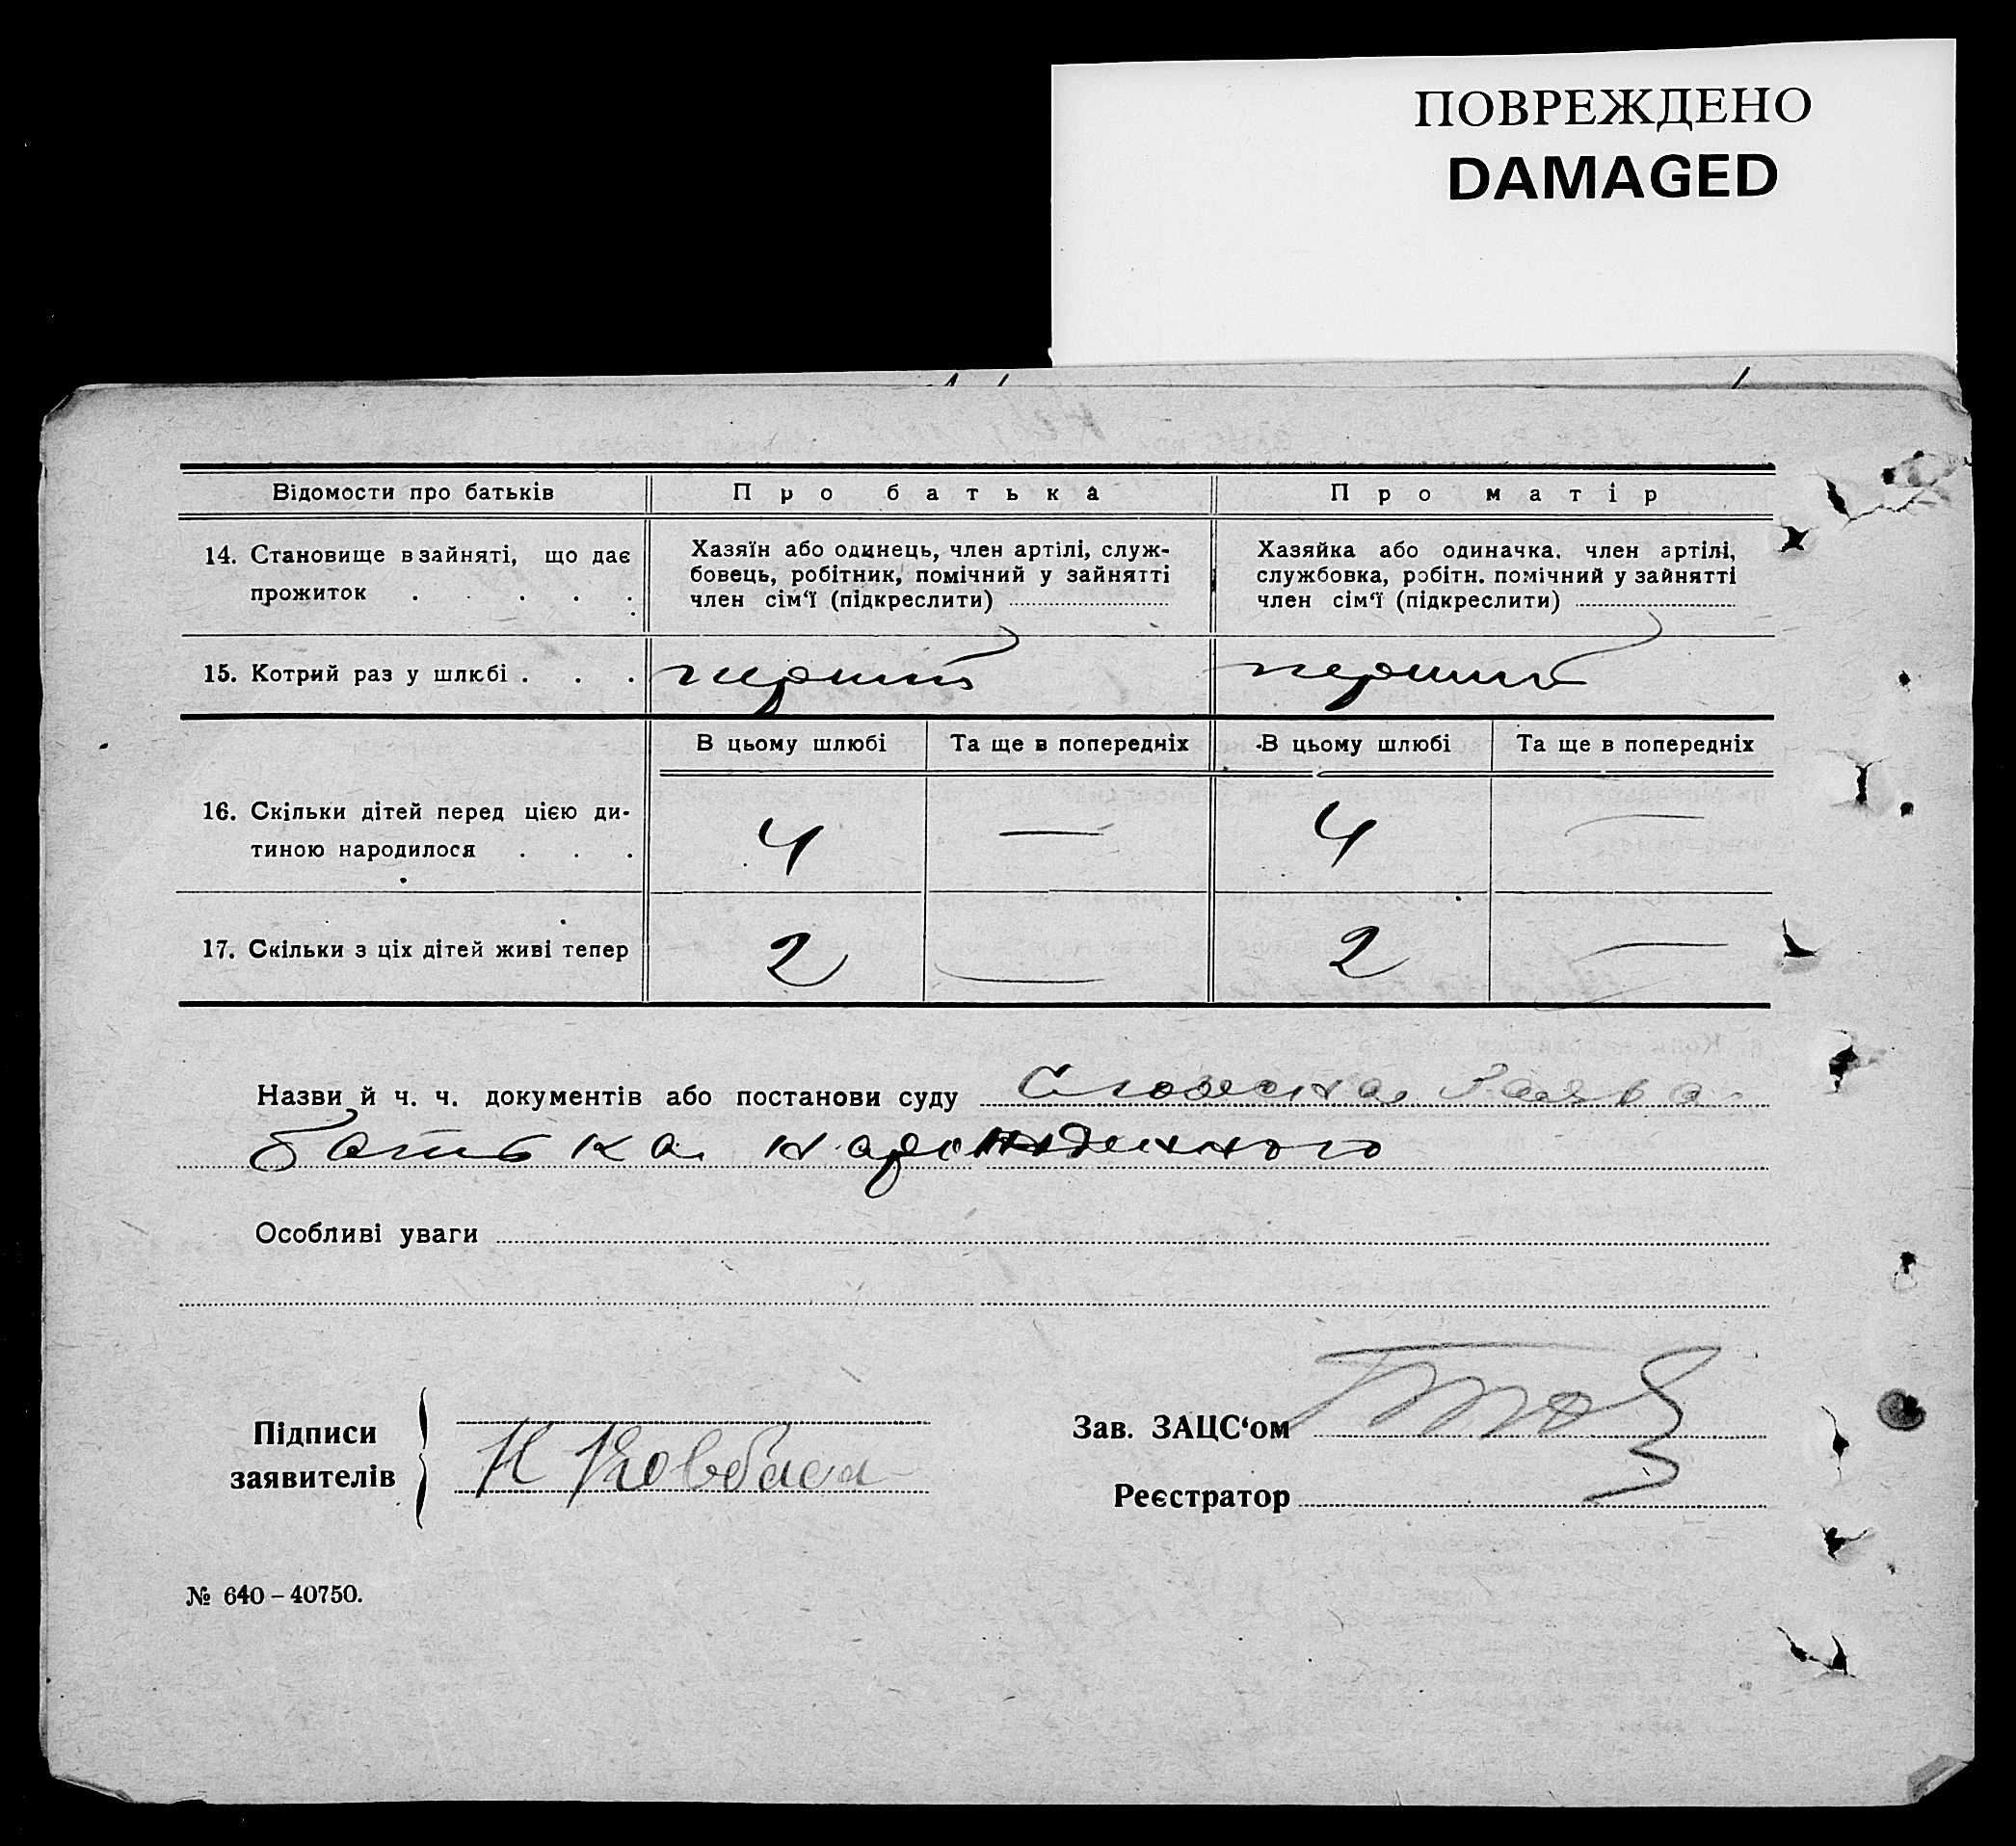 ПОВРЕЖДЕНО
DAMAGED
Відомости про батьків
Про батька
Про матір
14. Становище в зайняті, що дає
прожиток . . . . .
Хазяїн або одинець, член артілі, служ-
бовець, робітник, помічний у зайнятті
член сім‘ї (підкреслити)
Хазяйка або одиначка. член артілі,
службовка, робітн. помічний у зайнятті
член сім‘ї (підкреслити)
15. Котрий раз у шлюбі . . .
перший
перший
В цьому шлюбі
Та ще в попередніх
В цьому шлюбі
Та ще в попередніх
16. Скільки дітей перед цією ди-
тиною народилося . . .
4 — 4 —
17. Скільки з ціх дітей живі тепер
2 — 2 —
Назви й ч. ч. документів або постанови суду Словесна Заява
батька народженного
Особливі уваги
Підписи
заявителів
Н Ковбаса
Зав. ЗАЦС‘ом
Реєстратор
№ 640 – 40750.